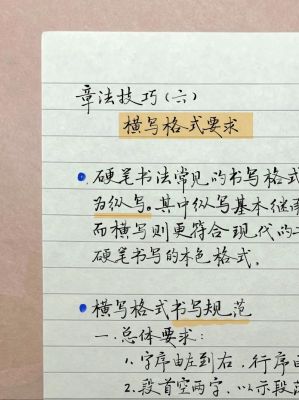 章法技巧(六)
横写格式要求
硬笔书法常见的书写格式
为纵写。其中纵写基本继承
而横写则更符合现代的
硬笔书写的本色格式。
横写格式书写规范
一.总体要求:
1.字序由左到右,行序由
2.段首空两字,以示段落